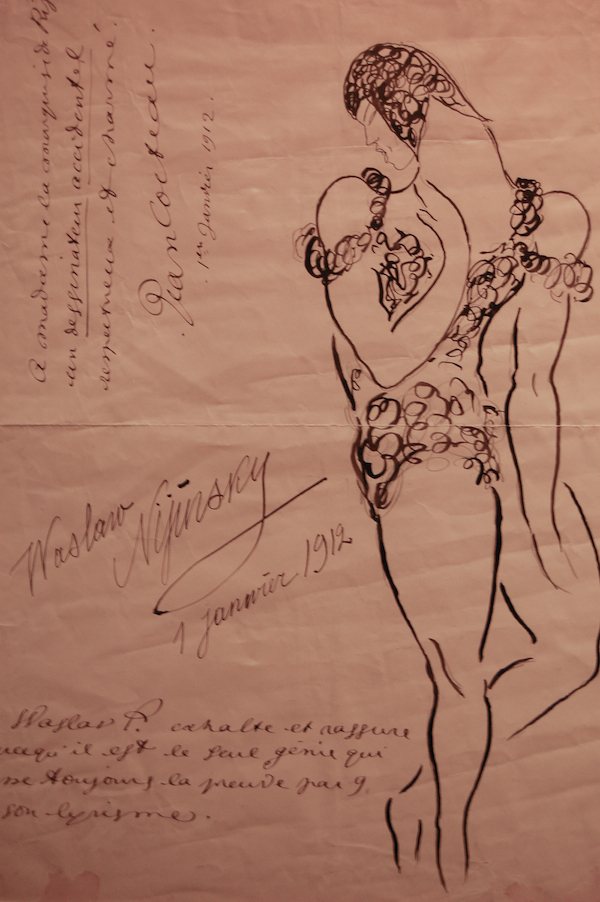 A madame la marquise de
un dessinateur accidentel
respectueux et charmé.
Jean Cocteau.
1er Janvier 1912.
Waslaw
Nijinsky
1 janvier 1912
Waslaw exhalte et rassure
qu'il est le seul génie qui
toujours la preuve par 9
son lyrisme.